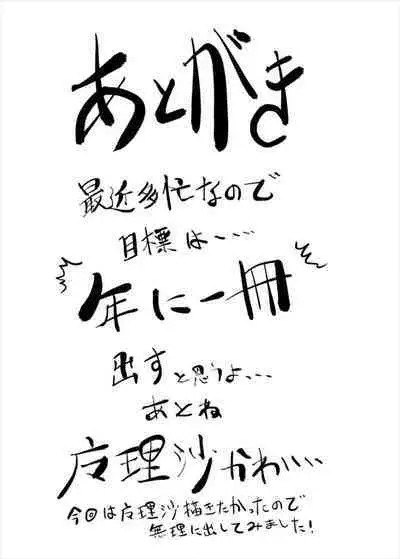 あとがき
最近多忙なので
目標は・・・
年に一冊
出すと思うよ・・・
あとね
广理沙かわいい
今回は广理沙描きたかったので
無理に出してみました!